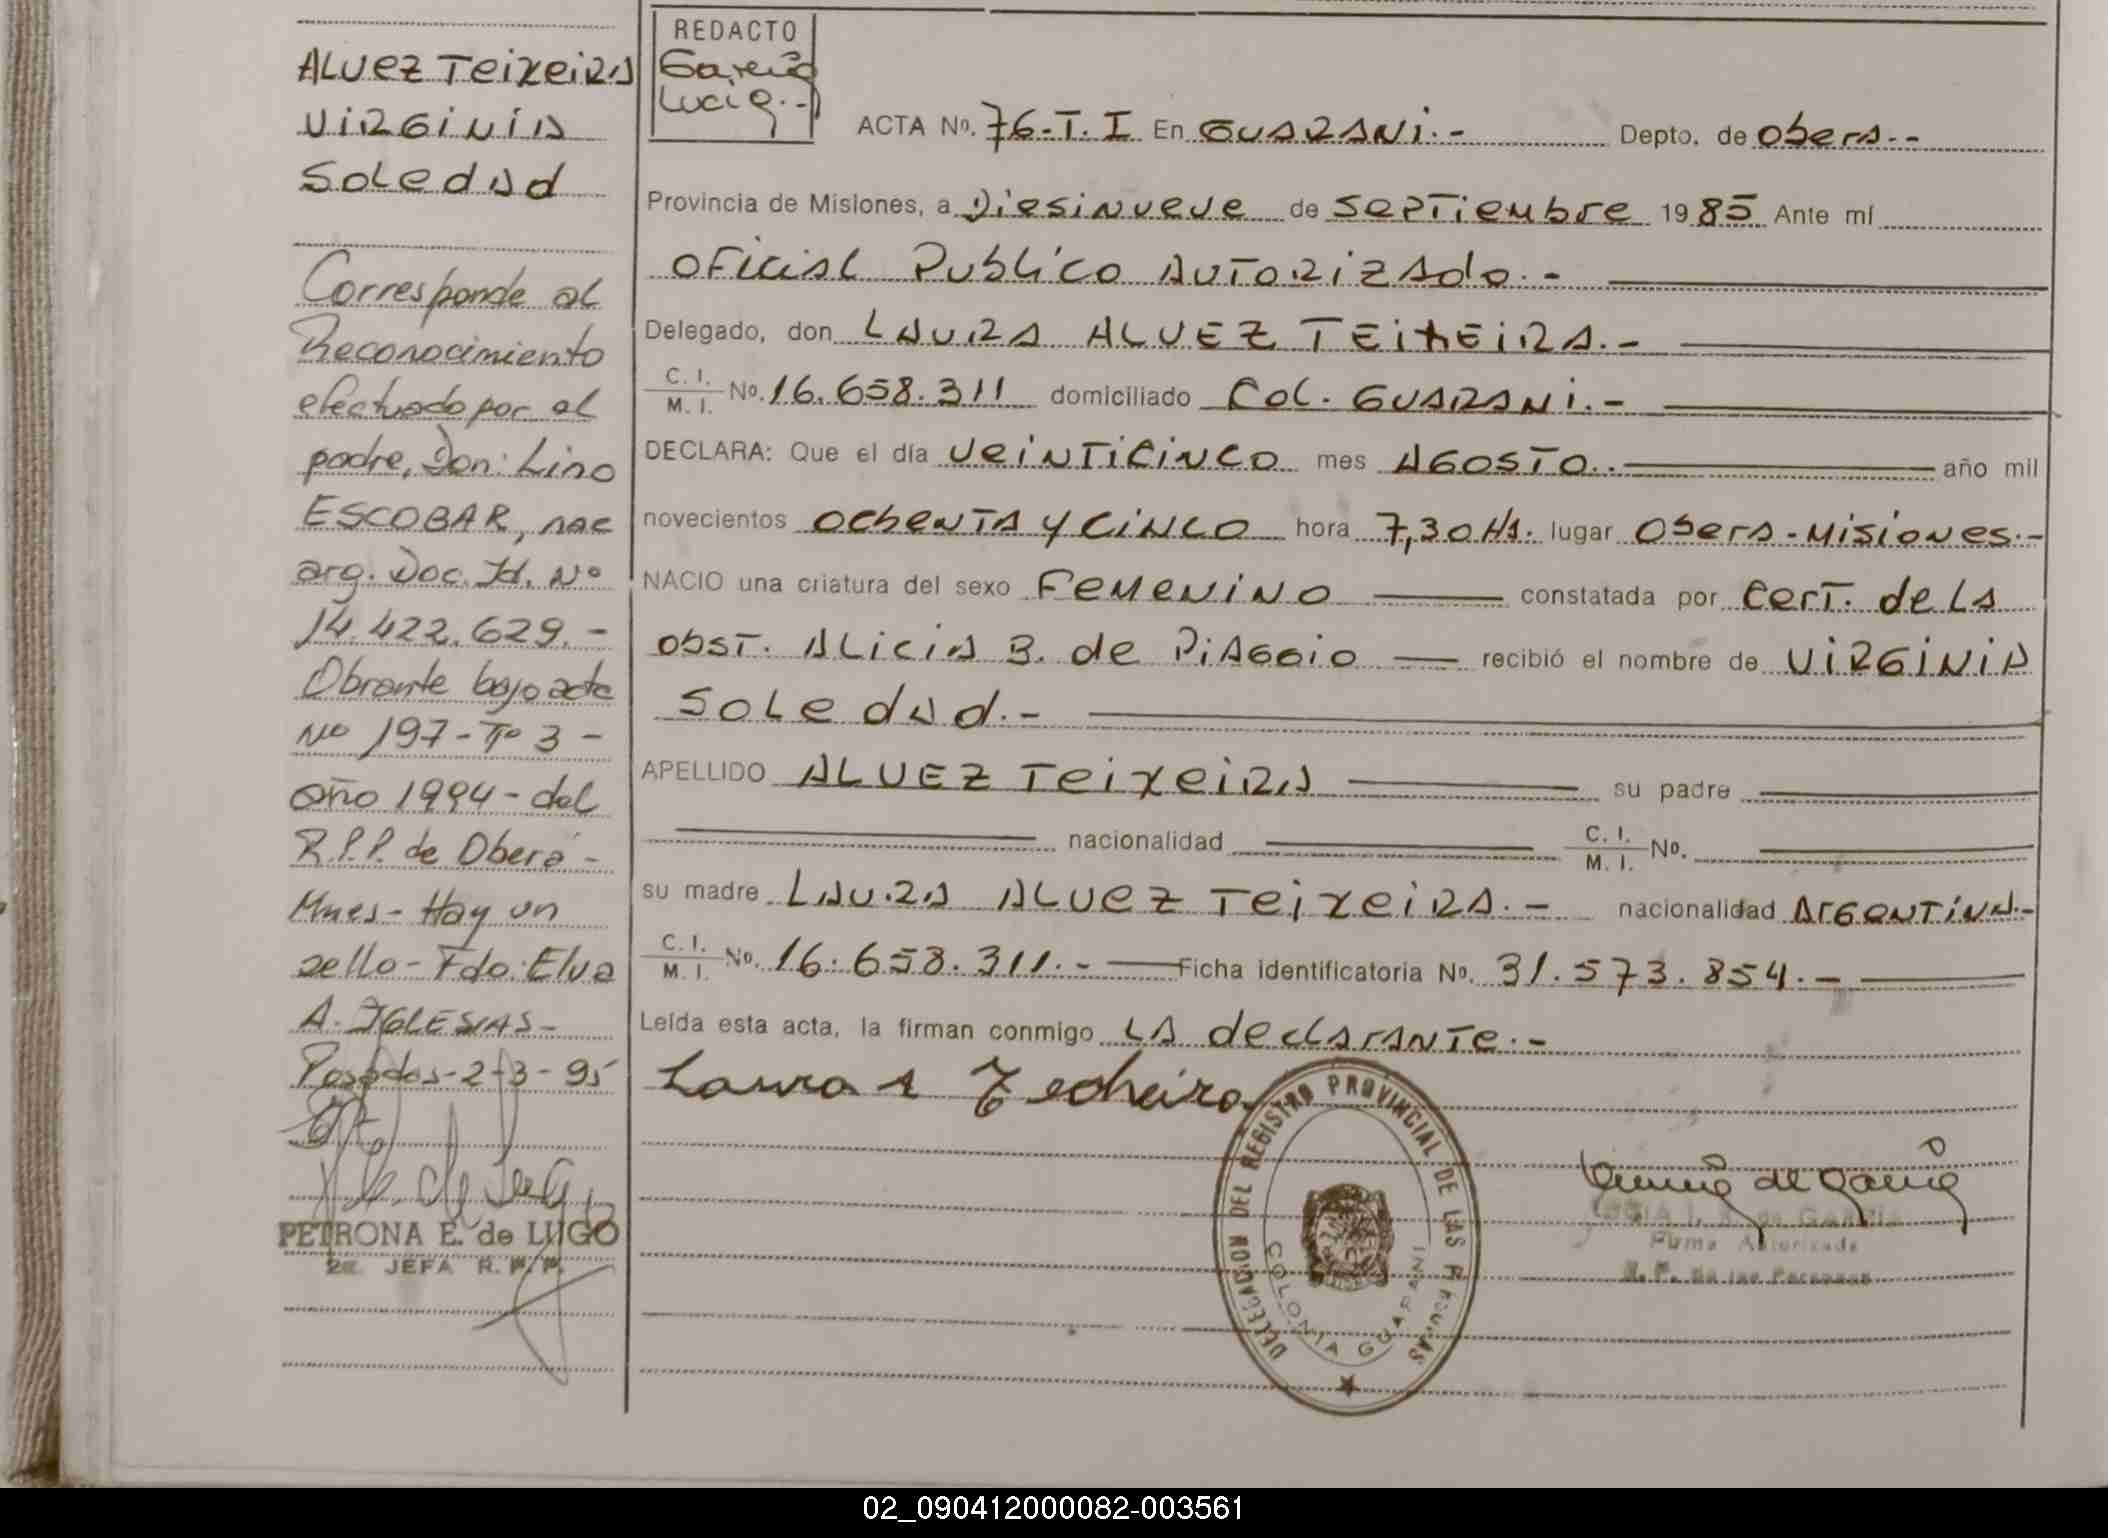 ALVEZ TEIXEIRA
VIRGINIA
SOLEDAD
Corresponde al
Reconocimiento
efectuado por el
padre, Don: Lino
ESCOBAR, nac
arg. Doc. Id. Nº
14.422.629.-
Obrante bajo acta
Nº 197-Tº 3-
año 1994-del
R.P.P. de Oberá-
Mnes- Hay un
sello- Fdo: Elva
A. IGLESIAS-
Posadas-2-3-95
PETRONA E. de LUGO
2a. JEFA R. P. P.
REDACTO
García
Lucia.-
ACTA Nº. 76-T.I En GUARANI.- Depto. de Obera.-
Provincia de Misiones, a Diesinueve de Septiembre 1985 Ante mí
Oficial Publico Autorizado.-
Delegado, don LAURA ALVEZ TEIXEIRA.-
C. I. / M. I. Nº. 16.658.311 domiciliado Col. GUARANI.-
DECLARA: Que el día VEINTICINCO mes AGOSTO.. año mil
novecientos OCHENTA Y CINCO hora 7,30 Hs. lugar Obera-Misiones.-
NACIO una criatura del sexo FEMENINO constatada por Cert. de La
Obst. Alicia B. de Piaggio recibió el nombre de VIRGINIA
SOLEDAD.-
APELLIDO ALVEZ TEIXEIRA su padre
nacionalidad C. I. / M. I. Nº.
su madre LAURA ALVEZ TEIXEIRA.- nacionalidad ARGENTINA.-
C. I. / M. I. Nº. 16.658.311.- Ficha identificatoria Nº. 31.573.854.-
Leída esta acta, la firman conmigo LA declarante.-
Laura A Techeira
DELEGACION DEL REGISTRO PROVINCIAL DE LAS PERSONAS
COLONIA GUARANI
de García
LUCIA de GARCIA
Firma Autorizada
R. P. de las Personas
02_090412000082-003561